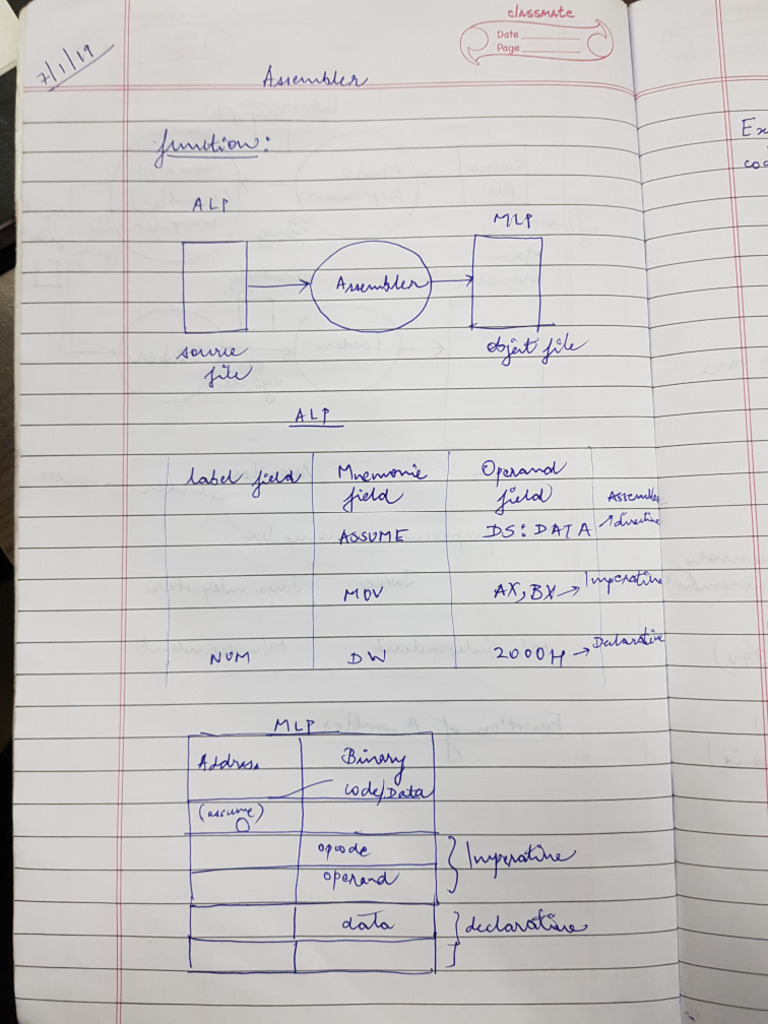 classmate
Date
Page
7/1/19
Assembler
function:
ALP
MLP
Assembler
source
file
object file
ALP
label field Mnemonic Operand
field field Assembler
directive
ASSUME DS: DATA
MOV AX, BX → Imperative
NUM DW 2000H → Declarative
MLP
Address Binary
code/Data
(assume)
0
opcode
operand
} Imperative
data } declarative
Ex